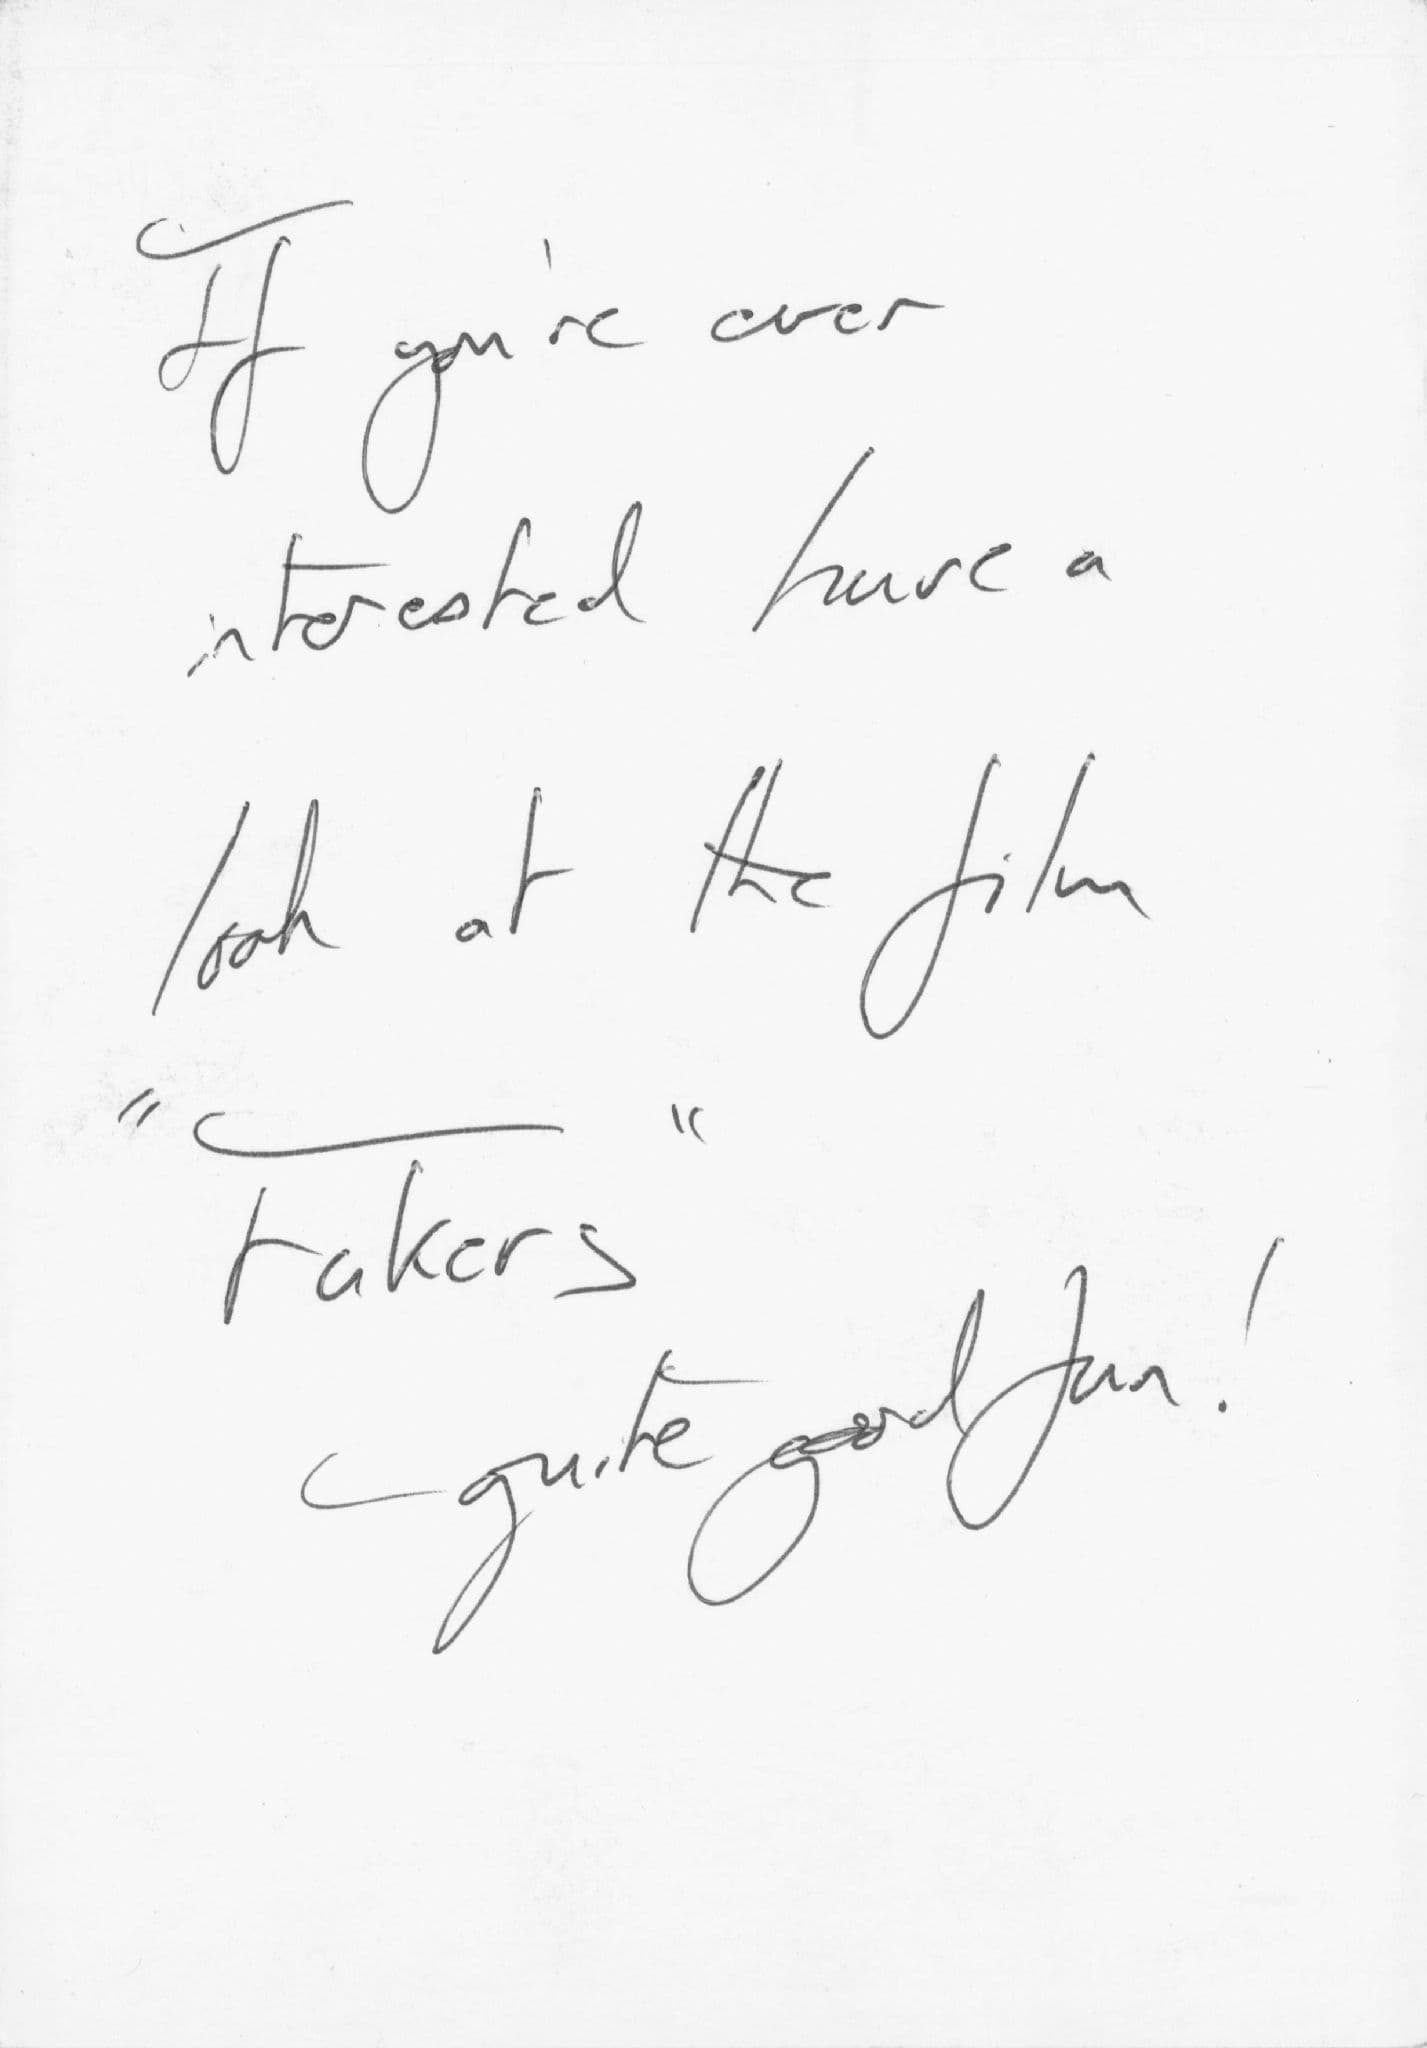 If you're ever
interested have a
look at the film
"Fakers"
- quite good fun!